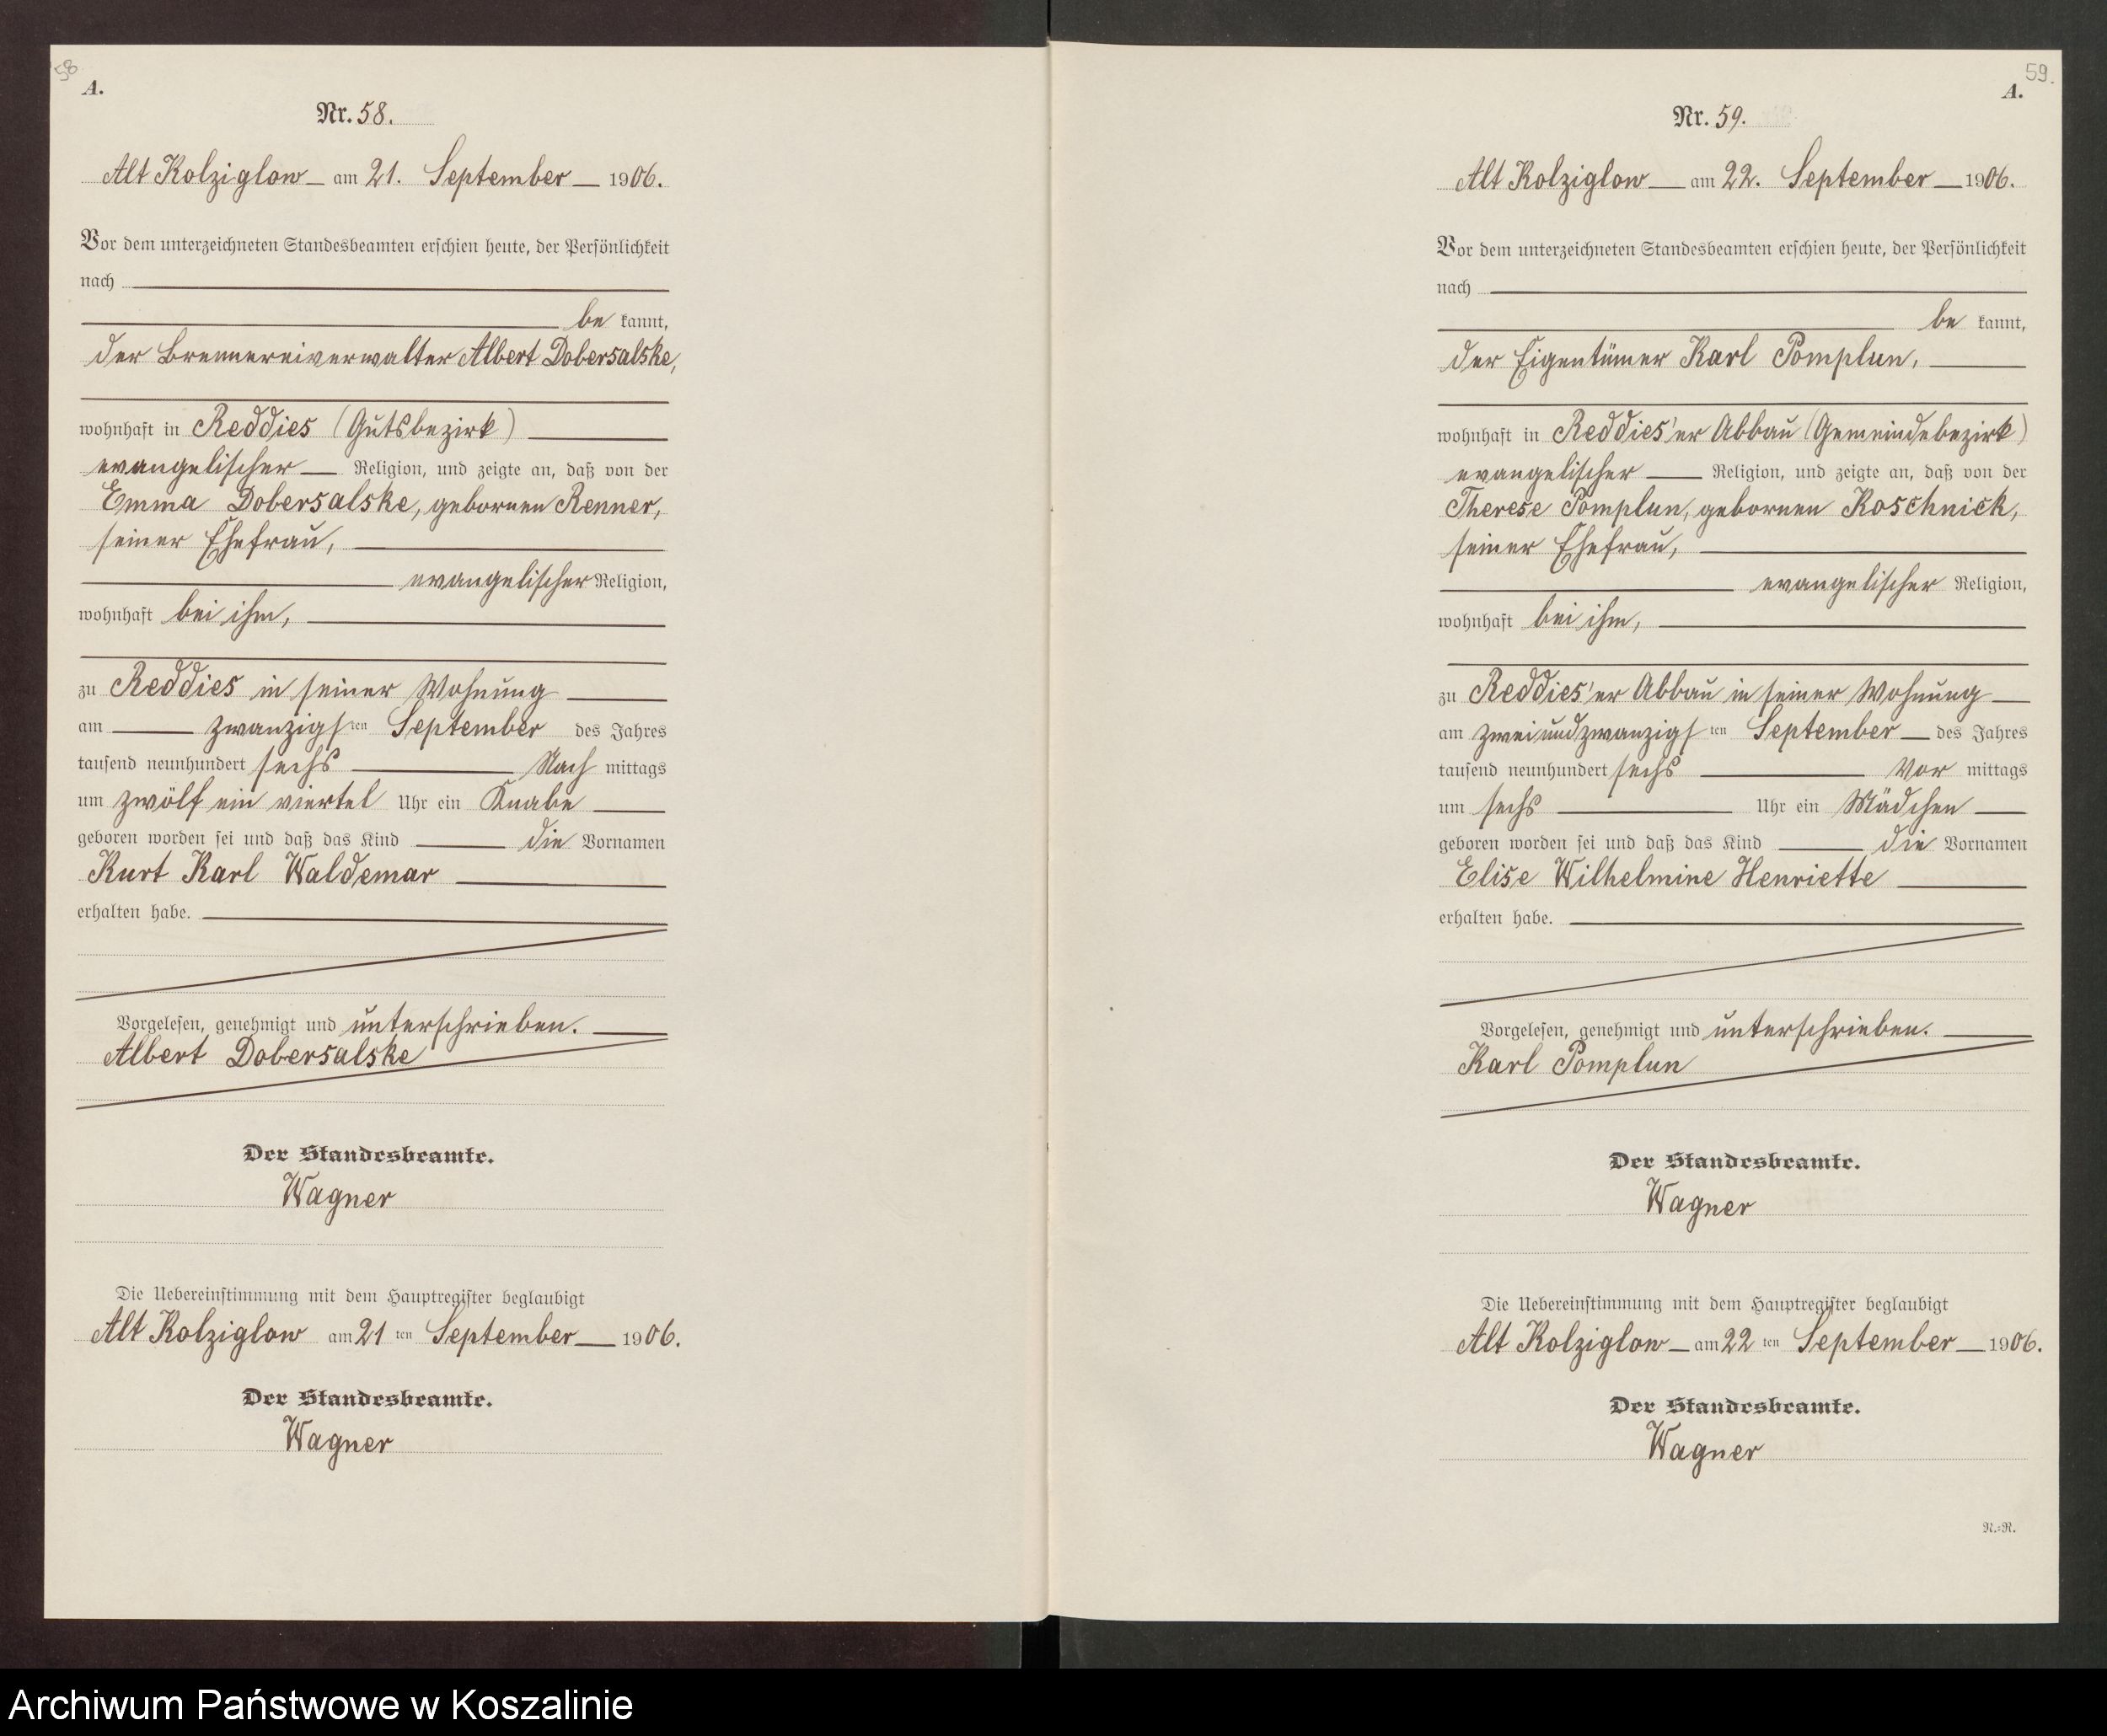 58
A.
Nr. 58.
Alt Kolziglow am 21. September 1906.
Vor dem unterzeichneten Standesbeamten erschien heute, der Persönlichkeit
nach
be kannt,
der Brennereiverwalter Albert Dobersalske,
wohnhaft in Reddies (Gutsbezirk)
evangelischer Religion, und zeigte an, daß von der
Emma Dobersalske, gebornen Renner,
seiner Ehefrau,
evangelischer Religion,
wohnhaft bei ihm,
zu Reddies in seiner Wohnung
am zwanzigsten September des Jahres
tausend neunhundert sechs Nach mittags
um zwölf ein viertel Uhr ein Knabe
geboren worden sei und daß das Kind die Vornamen
Kurt Karl Waldemar
erhalten habe.
Vorgelesen, genehmigt und unterschrieben.
Albert Dobersalske
Der Standesbeamte.
Wagner
Die Uebereinstimmung mit dem Hauptregister beglaubigt
Alt Kolziglow am 21 ten September 1906.
Der Standesbeamte.
Wagner
59.
A.
Nr. 59.
Alt Kolziglow am 22. September 1906.
Vor dem unterzeichneten Standesbeamten erschien heute, der Persönlichkeit
nach
be kannt,
der Eigentümer Karl Pomplun,
wohnhaft in Reddies'er Abbau (Gemeindebezirk)
evangelischer Religion, und zeigte an, daß von der
Therese Pomplun, gebornen Koschnick,
seiner Ehefrau,
evangelischer Religion,
wohnhaft bei ihm,
zu Reddies'er Abbau in seiner Wohnung
am zweiundzwanzigsten September des Jahres
tausend neunhundert sechs Vor mittags
um sechs Uhr ein Mädchen
geboren worden sei und daß das Kind die Vornamen
Elise Wilhelmine Henriette
erhalten habe.
Vorgelesen, genehmigt und unterschrieben.
Karl Pomplun
Der Standesbeamte.
Wagner
Die Uebereinstimmung mit dem Hauptregister beglaubigt
Alt Kolziglow am 22 ten September 1906.
Der Standesbeamte.
Wagner
N.=R.
Archiwum Państwowe w Koszalinie